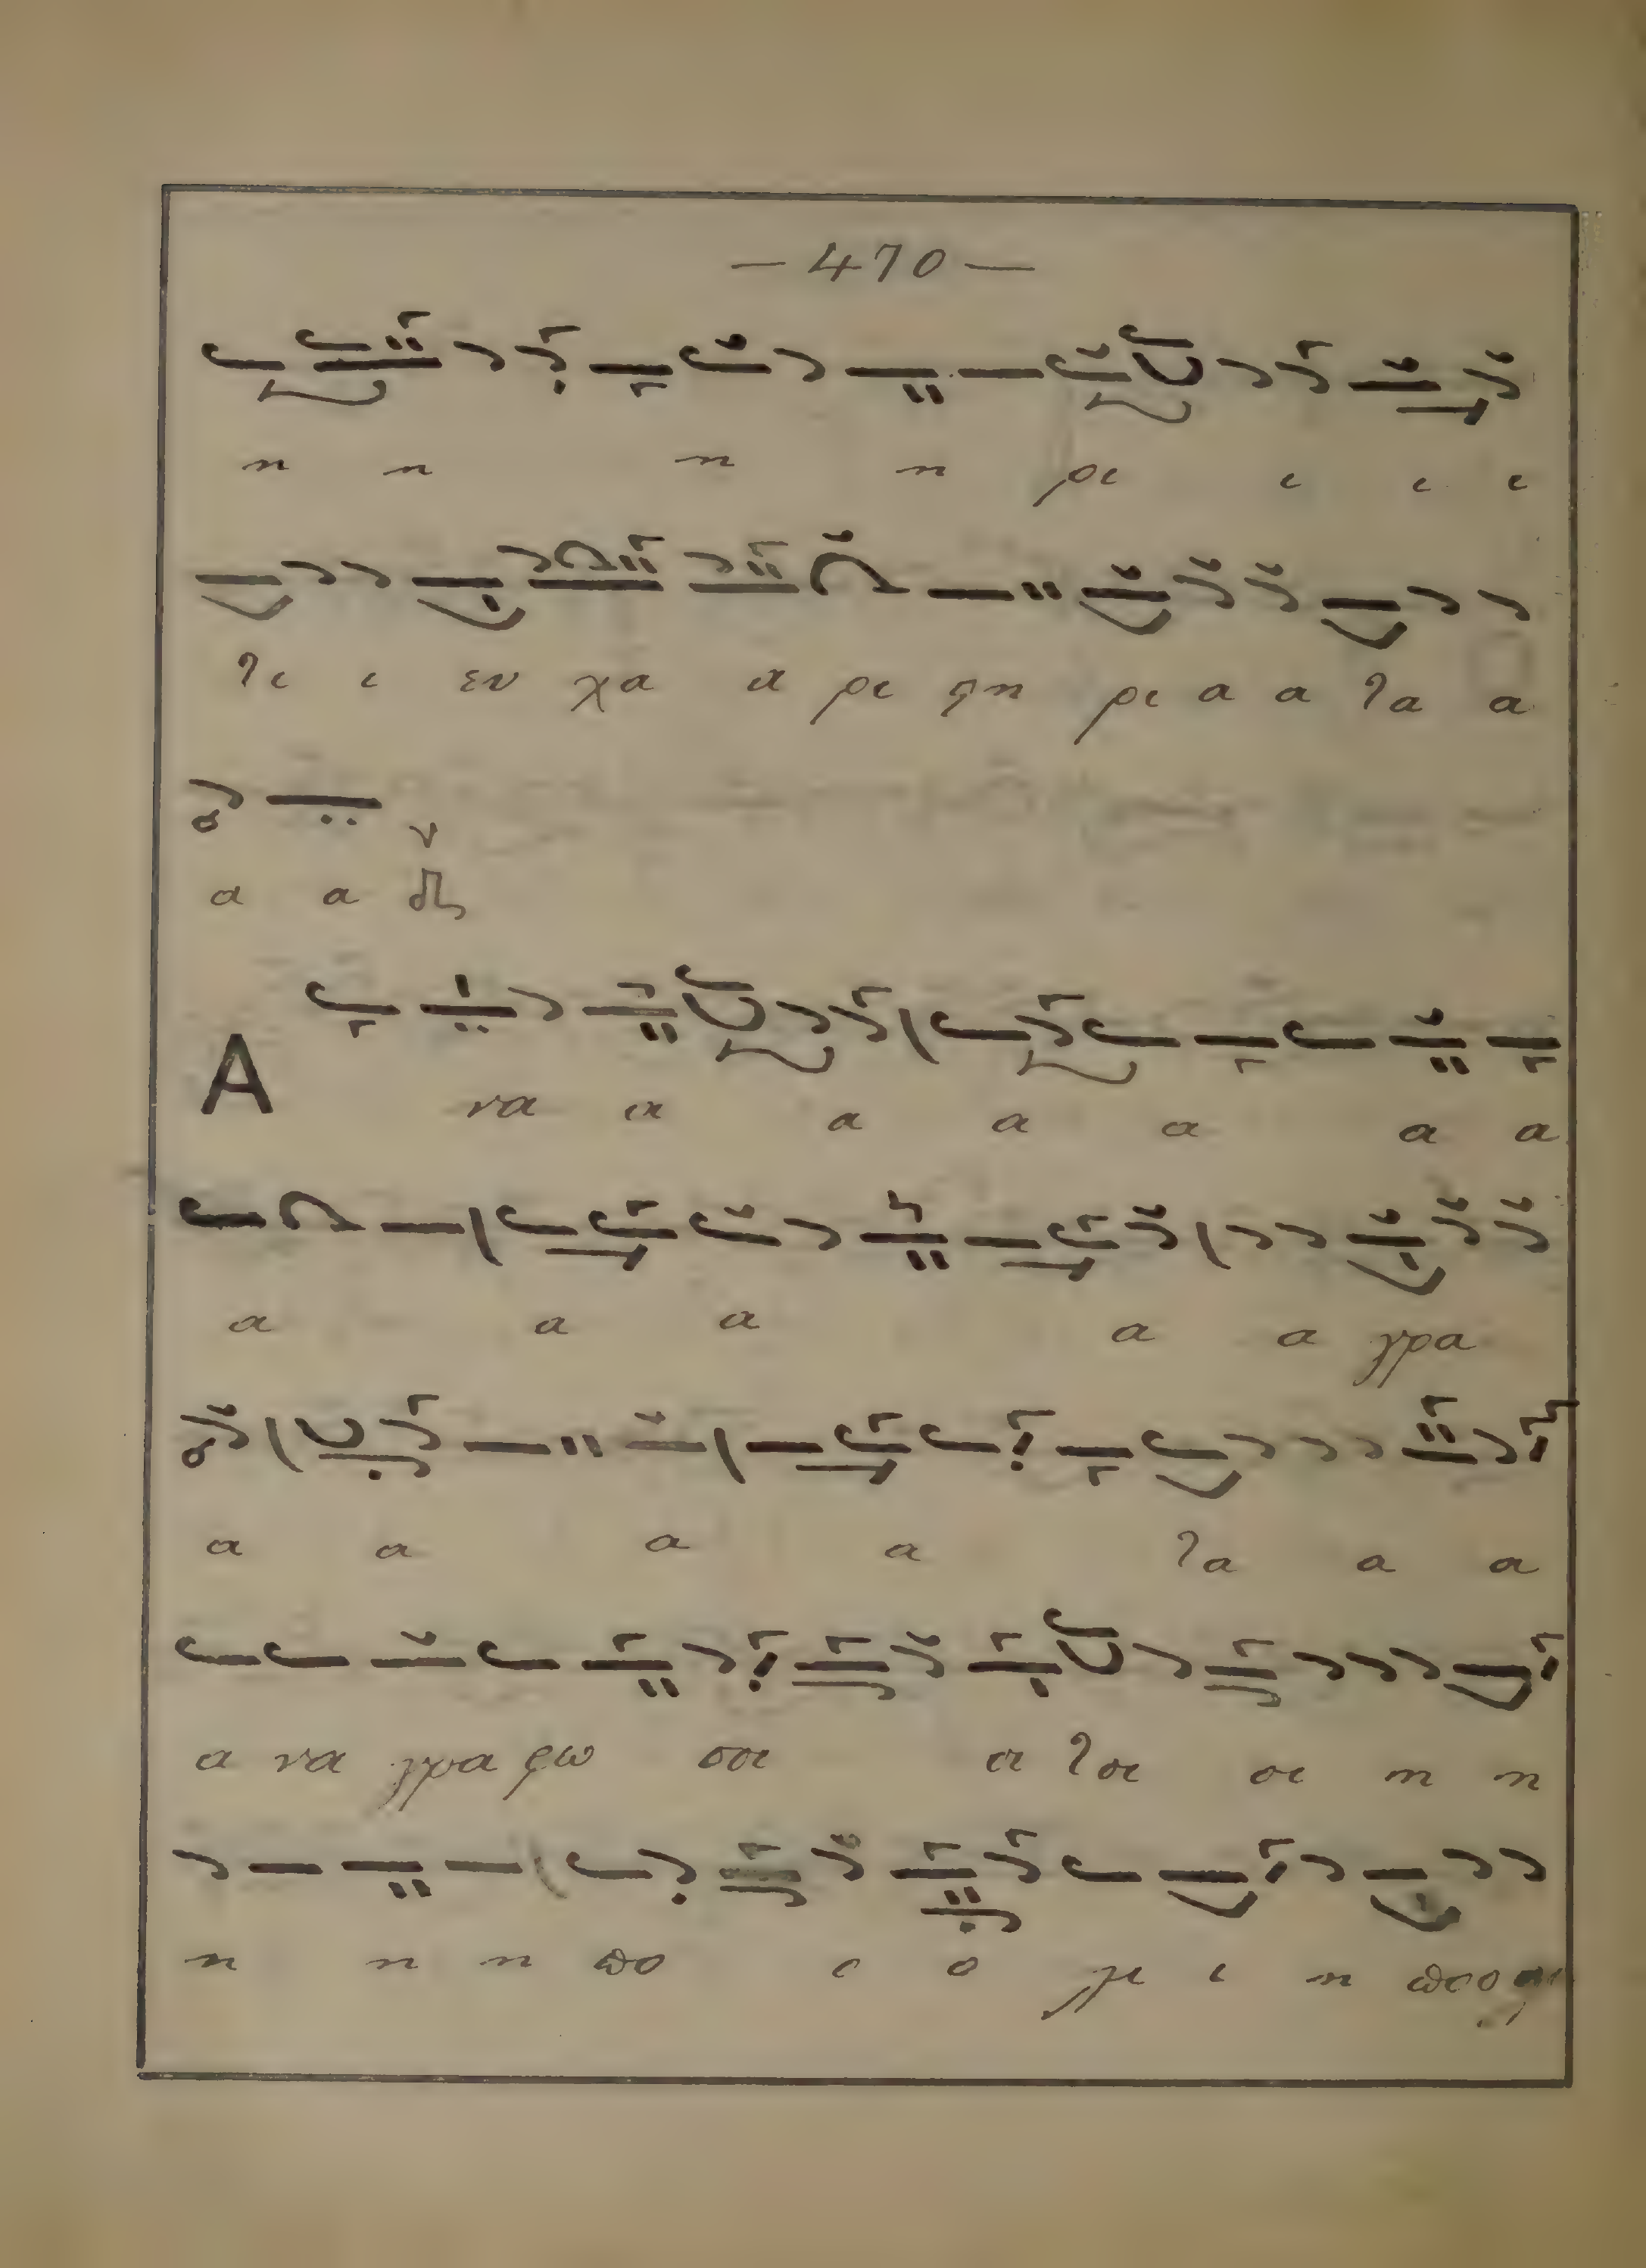 — 470 —
η η η η ρι ι ι ι
τι ι ευ χα α ρι ϛη ρι α α τα α
α α
Α να α α α α α α
α α α α α γρα
α α α α τα α α
α να γρα φω σοι α τοι οι η η
η η η πο ο ο μι ι η